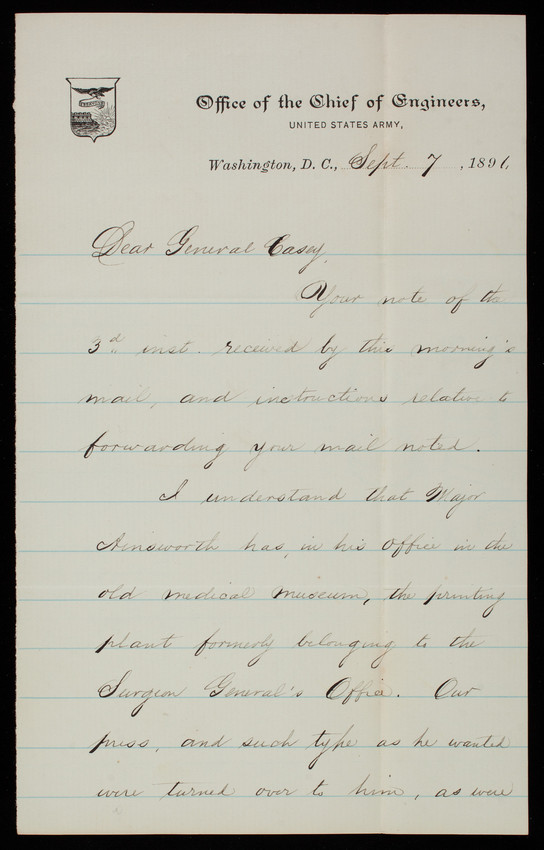 Office of the Chief of Engineers,
UNITED STATES ARMY,
Washington, D. C., Sept. 7, 1891.
Dear General Casey,
Your note of the
3d inst. received by this morning's
mail, and instructions relative to
forwarding your mail noted.
I understand that Major
Ainsworth has, in his office in the
old medical museum, the printing
plant formerly belonging to the
Surgeon General's Office. Our
press, and such type as he wanted
were turned over to him, as were